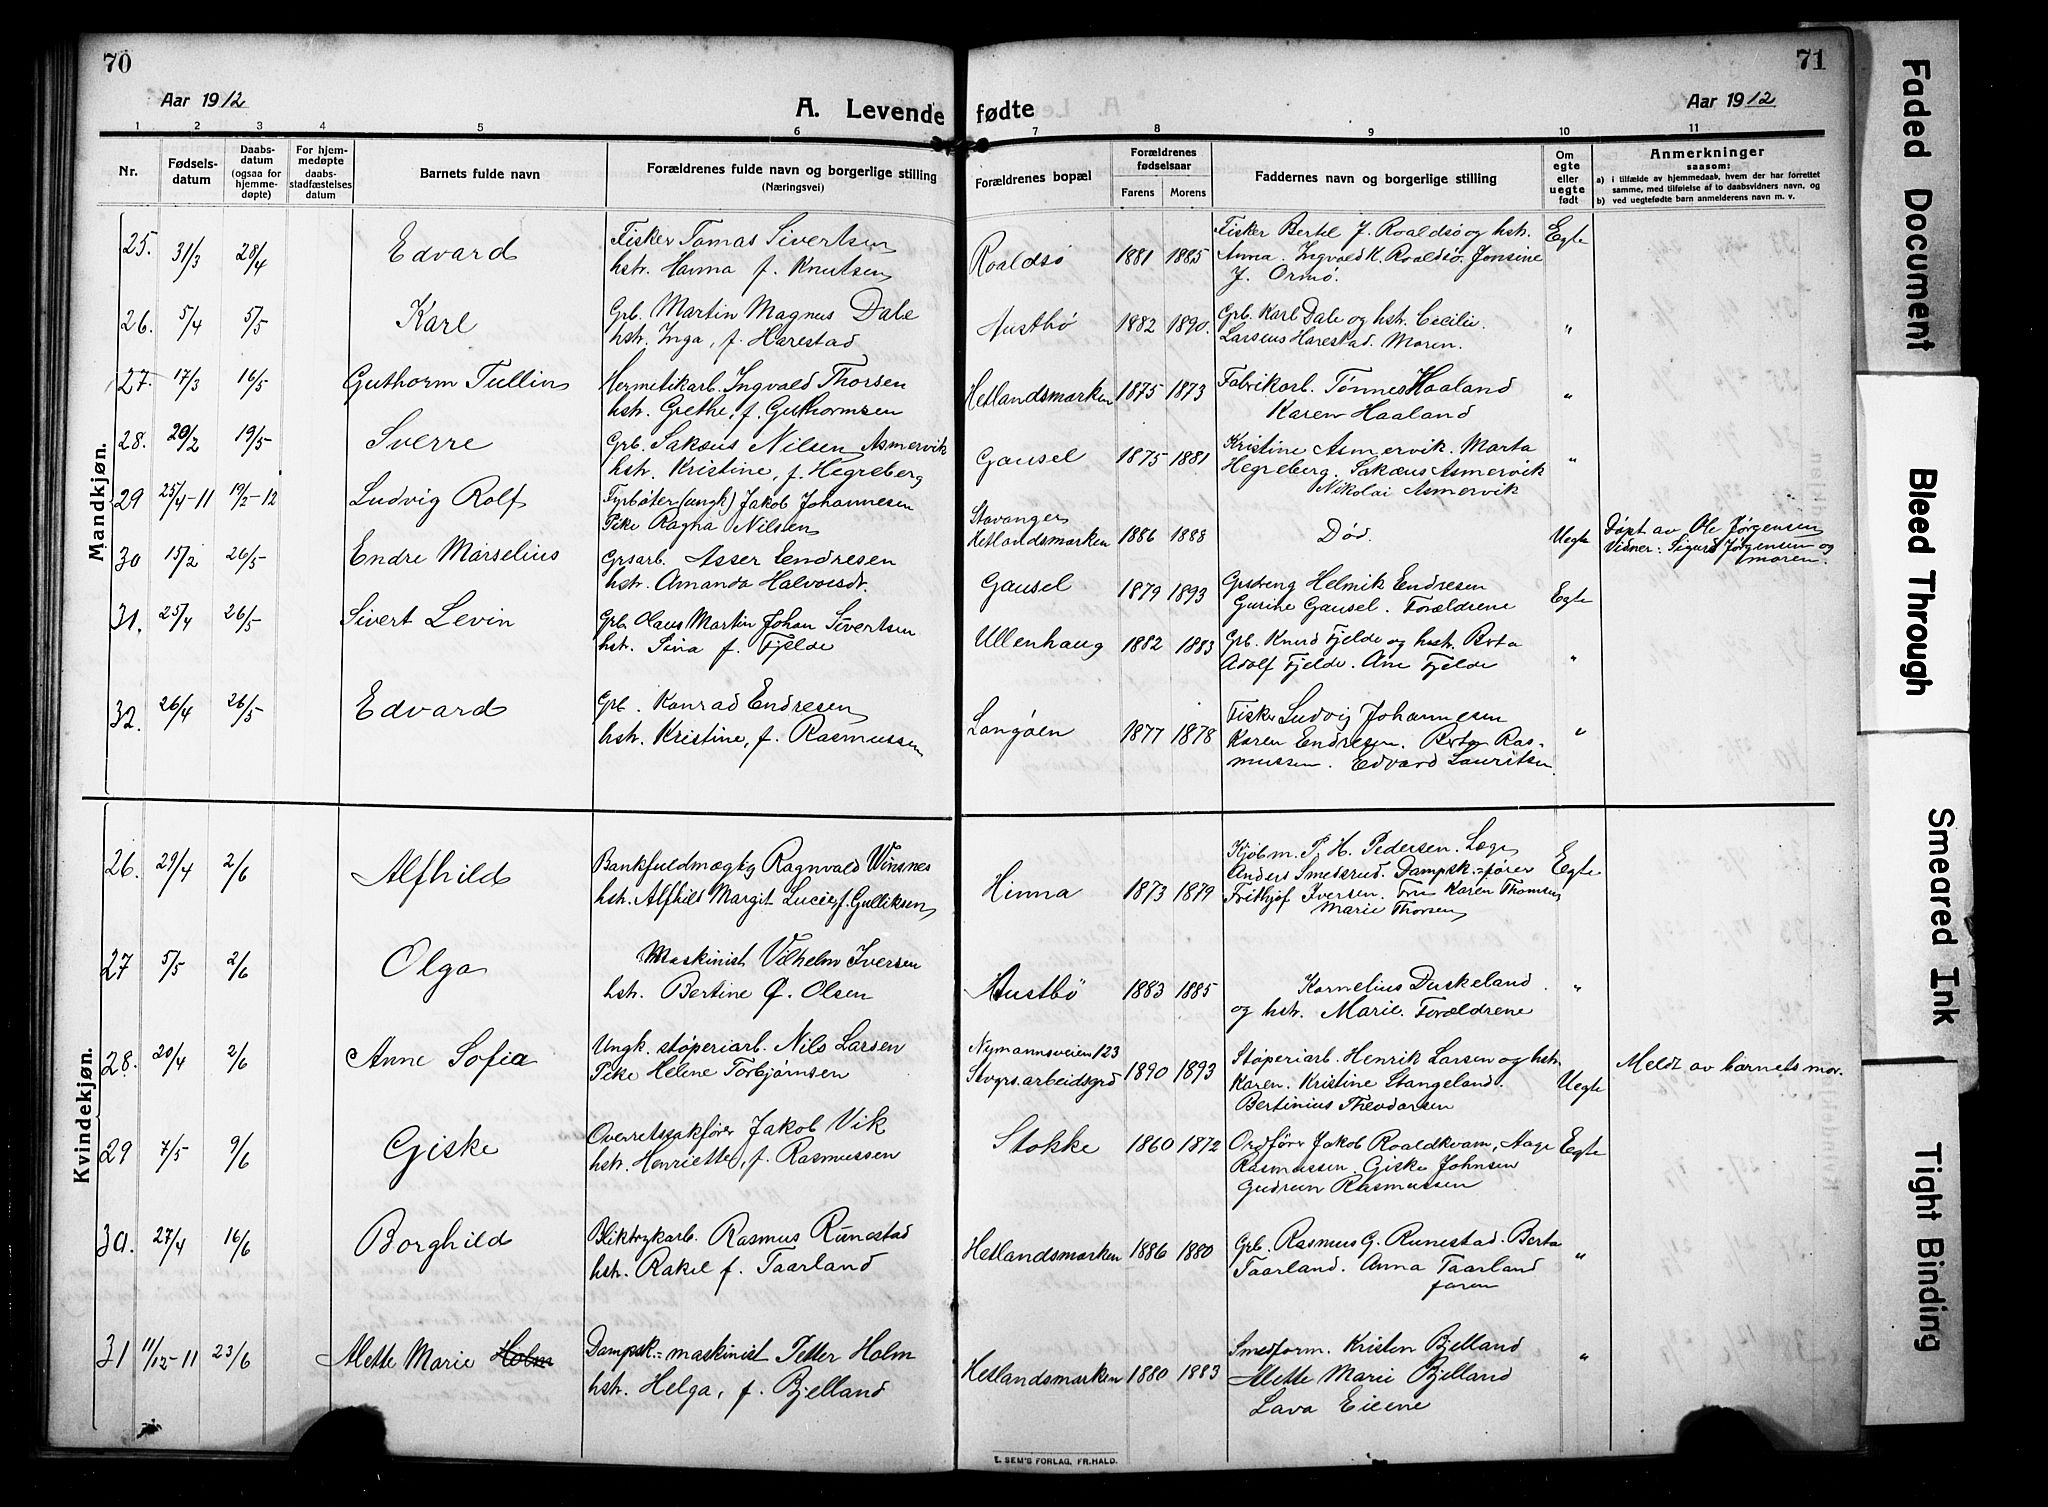 70
71
Aar 1912
A. Levende fødte
Aar 1912
1 2 3 4 5 6 7 8 9 10 11
Nr.
Fødsels-
datum
Daabs-
datum
(ogsaa for
hjemme-
døpte)
For hjem-
medøpte
daabs-
stadfæstelses
datum
Barnets fulde navn
Forældrenes fulde navn og borgerlige stilling
(Næringsvei)
Forældrenes bopæl
Forældrenes
fødselsaar
Farens Morens
Faddernes navn og borgerlige stilling
Om
egte
eller
uegte
født
Anmerkninger
saasom:
a) i tilfælde av hjemmedaab, hvem der har forrettet
samme, med tilføielse af to daabsvidners navn, og
b) ved uegtefødte barn anmelderens navn m. v.
Mandkjøn.
25. 31/3 28/4 Edvard
Fisker Tomas Sivertsen
hstr. Hanna f. Knutsen
Roaldsø 1881 1885
Fisker Bertil J. Roaldsø og hstr.
Anna. Ingvald K. Roaldsø. Jonsine
J. Ormø.
Egte
26. 5/4 5/5 Karl
Grb. Martin Magnus Dale
hstr. Inga, f. Harestad
Austbø 1882 1890.
Grb. Karl Dale og hstr. Cecilie.
Larsens Harestad. Moren.
"
27. 17/3 16/5 Guthorm Tullin
Hermetikarb. Ingvald Thorsen
hstr. Grethe, f. Guthormsen
Hetlandsmarken 1875 1873
Fabrikarb. Tønnes Haaland
Karen Haaland
"
28. 20/2 19/5 Sverre
Grb. Sakæus Nilsen Asmervik
hstr. Kristine, f. Hegreberg
Gausel 1875 1881
Kristine Asmervik. Marta
Hegreberg. Sakæus Asmervik
Nikolai Asmervik
"
29 25/4-11 19/2-12 Ludvig Rolf
Fyrbøter (ungk) Jakob Johannesen
Pike Ragna Nilsen
Stavanger
Hetlandsmarken 1886 1888
Død.
Uegte
Døpt av Ole Jørgensen
Vidner: Sigurd Jørgensen og
moren.
30 15/2 26/5 Endre Marselius
Grsarb. Asser Endresen
hstr. Amanda Halvorsdr.
Gausel 1879 1893
Grsdreng Helmik Endresen
Gurine Gausel. Forældrene
Egte
31. 25/4 26/5 Sivert Levin
Grb. Olaus Martin Johan Sivertsen
hstr. Sina f. Fjelde
Ullenhaug 1882 1883
Grb. Knud Fjelde og hstr. Berta
Adolf Fjelde. Ane Fjelde
"
32. 26/4 26/5 Edvard
Grb. Konrad Endresen
hstr. Kristine, f. Rasmussen
Langøen 1877 1878
Fisker Ludvig Johannesen
Karen Endresen. Berta Ras-
mussen. Edvard Lauritsen.
"
Kvindekjøn.
26. 29/4 2/6 Alfhild
Bankfuldmægtig Ragnvald Winsnes
hstr. Alfhild Margit Lucie, f. Gulliksen
Hinna 1873 1879
Kjøbm. P. H. Pedersen. Læge
Anders Smedsrud. Dampsk.=fører
Frithjof Iversen. Fru Karen Thomsen
Marie Thorsen
Egte
27 5/5 2/6 Olga
Maskinist Vilhelm Iversen
hstr. Bertine f. Olsen
Austbø 1883 1885
Kornelius Duskeland
og hstr. Marie. Forældrene
"
28. 20/4 2/6 Anne Sofia
Ungk. støperiarb. Nils Larsen
Pike Helene Torbjørnsen
Nymannsveien 123
Stvgrs. arbeidsgrd 1890 1893
Støperiarb. Henrik Larsen og hstr.
Karen. Kristine Stangeland.
Bertinius Theodorsen
Uegte
Meldt av barnets mor.
29 7/5 9/6 Giske
Overretssakfører Jakob Vik
hstr. Henriette, f. Rasmussen
Stokke 1860 1872
Ordfører Jakob Roaldkvam, Aage
Rasmussen. Giske Johnsen
Gudrun Rasmussen
Egte
30. 27/4 16/6 Borghild
Bliktrykarb. Rasmus Runestad
hstr. Rakel f. Taarland
Hetlandsmarken 1886 1880
Grb. Rasmus G. Runestad. Berta
Taarland. Anna Taarland
faren
"
31 11/12-11 23/6 Alette Marie Holm
Dampsk.=maskinist Petter Holm
hstr. Helga, f. Bjelland
Hetlandsmarken 1880 1883
Smedform. Kristen Bjelland
Alette Marie Bjelland
Lava Eiene
"
E. SEM'S FORLAG, FR.HALD.
Faded Document
Bleed Through
Smeared Ink
Tight Binding